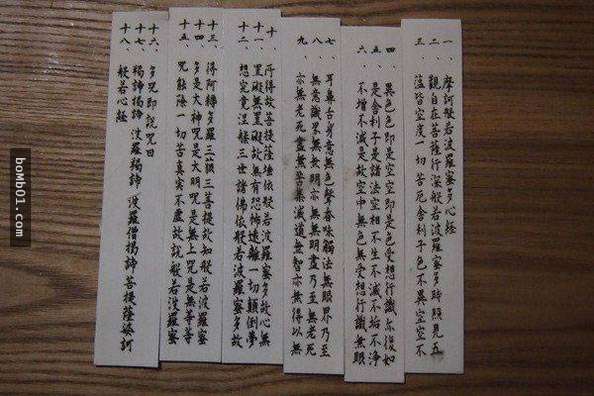 一、摩訶般若波羅蜜多心経
二、觀自在菩薩行深般若波羅蜜多時照見五
三、蘊皆空度一切苦厄舍利子色不異空空不
四、異色色即是空空即是色受想行識亦復如
五、是舍利子是諸法空相不生不滅不垢不淨
六、不增不減是故空中無色無受想行識無眼
七、耳鼻舌身意無色聲香味觸法無眼界乃至
八、無意識界無無明亦無無明盡乃至無老死
九、亦無老死盡無苦集滅道無智亦無得以無
十、所得故菩提薩埵依般若波羅蜜多故心無
十一、罣礙無罣礙故無有恐怖遠離一切顛倒夢
十二、想究竟涅槃三世諸佛依般若波羅蜜多故
十三、得阿耨多羅三藐三菩提故知般若波羅蜜
十四、多是大神呪是大明呪是無上呪是無等等
十五、呪能除一切苦真實不虛故說般若波羅蜜
十六、多呪即說呪曰
十七、揭諦揭諦 波羅揭諦 波羅僧揭諦菩提薩婆訶
十八、般若心経
boMb01.com